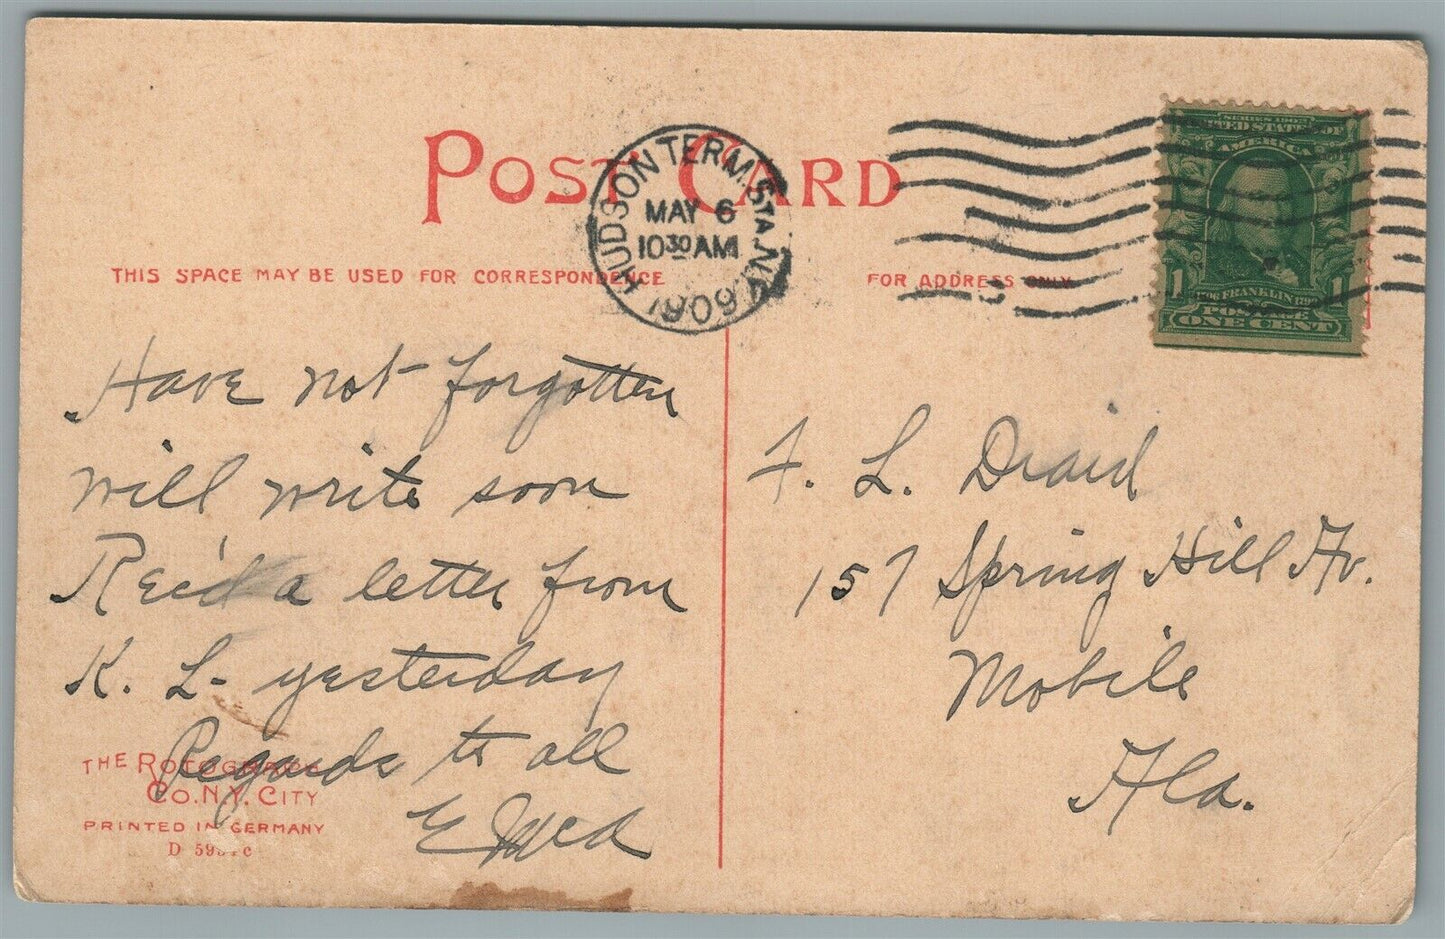 POST CARD
HUDSON TERM. STA. N.Y.
MAY 6
1030 AM
THIS SPACE MAY BE USED FOR CORRESPONDENCE
FOR ADDRESS ONLY
SERIES 1902
UNITED STATES OF
AMERICA
1 FRANKLIN 1
POSTAGE
ONE CENT
Have not forgotten
will write soon
Rec'd a letter from
K. L. yesterday
Regards to all
F. L. Diaid
157 Spring Hill Av.
Mobile
Ala.
THE ROTOGRAPH
CO. N.Y. CITY
PRINTED IN GERMANY